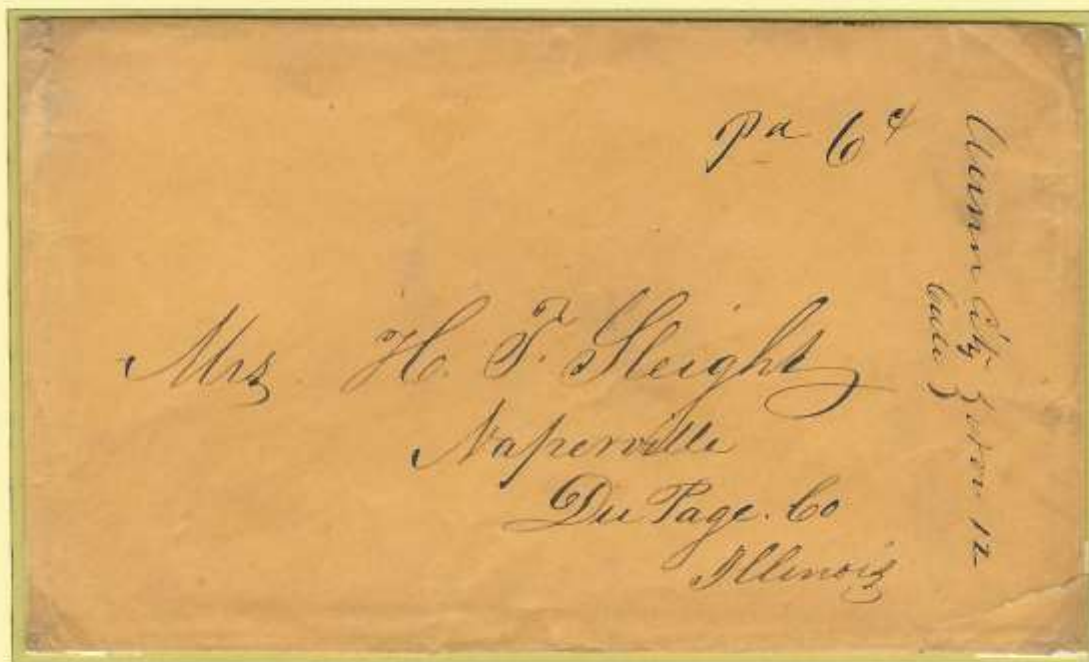 pd 6c
City Nov 12
Cala
Mrs. H. F. Sleight
Naperville
Du Page. Co
Illinois